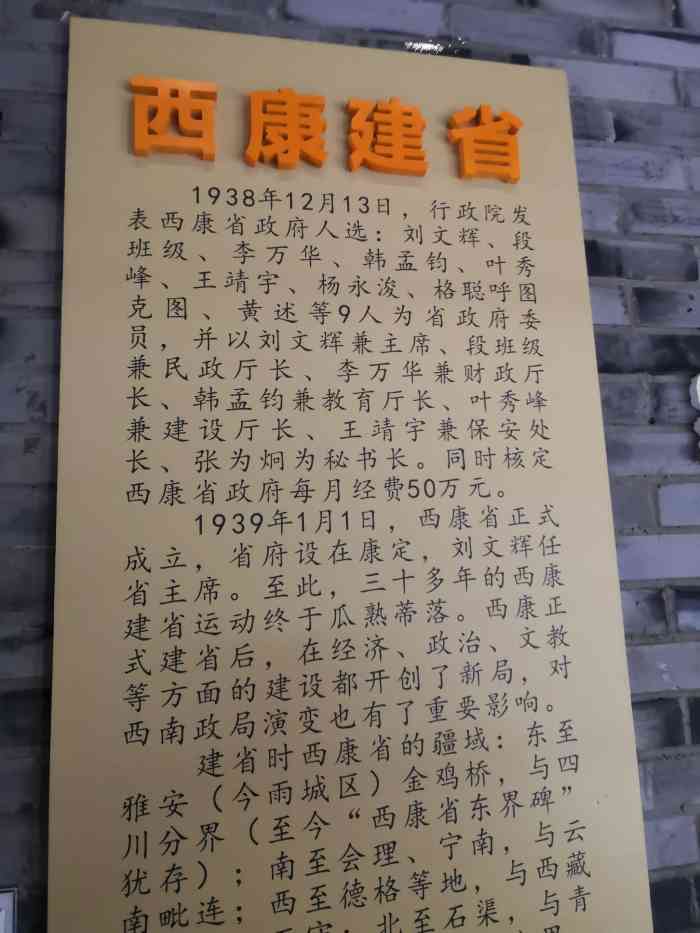 西康建省
1938年12月13日，行政院发
表西康省政府人选：刘文辉、段
班级、李万华、韩孟钧、叶秀
峰、王靖宇、杨永浚、格聪呼图
克图、黄述等9人为省政府委
员，并以刘文辉兼主席、段班级
兼民政厅长、李万华兼财政厅
长、韩孟钧兼教育厅长、叶秀峰
兼建设厅长、王靖宇兼保安处
长、张为炯为秘书长。同时核定
西康省政府每月经费50万元。
1939年1月1日，西康省正式
成立，省府设在康定，刘文辉任
省主席。至此，三十多年的西康
建省运动终于瓜熟蒂落。西康正
式建省后，在经济、政治、文教
等方面的建设都开创了新局，对
西南政局演变也有了重要影响。
建省时西康省的疆域：东至
雅安（今雨城区）金鸡桥，与四
川分界（至今“西康省东界碑”
犹存）；南至会理、宁南，与云
南毗连；西至德格等地，与西藏
北至石渠，与青